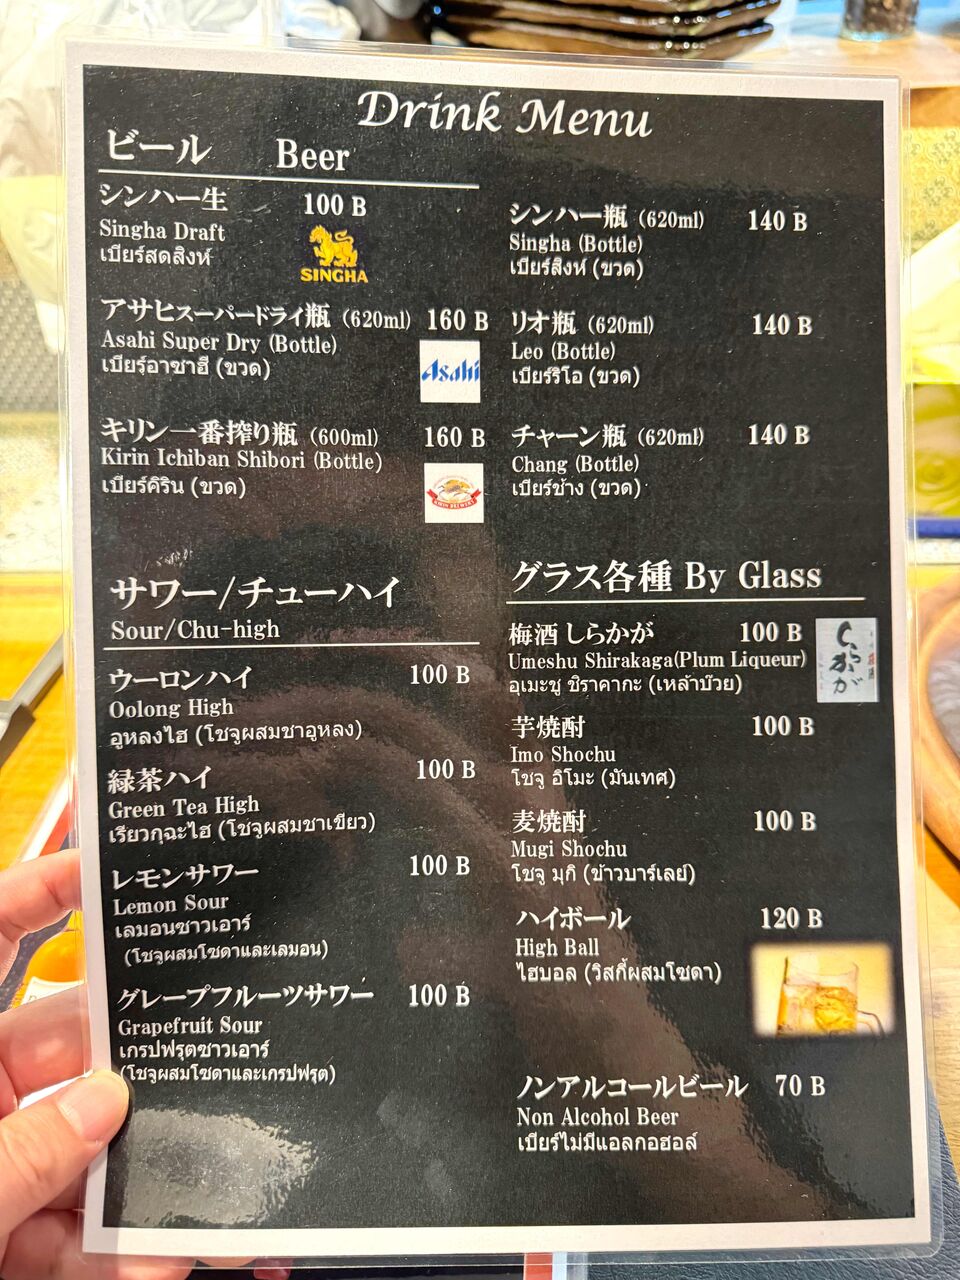 Drink Menu
ビール Beer
シンハー生 100 B
Singha Draft
เบียร์สดสิงห์
SINGHA
アサヒスーパードライ瓶 (620ml) 160 B
Asahi Super Dry (Bottle)
เบียร์อาซาฮี (ขวด)
Asahi
キリン一番搾り瓶 (600ml) 160 B
Kirin Ichiban Shibori (Bottle)
เบียร์คิริน (ขวด)
KIRIN BREWERY
シンハー瓶 (620ml) 140 B
Singha (Bottle)
เบียร์สิงห์ (ขวด)
リオ瓶 (620ml) 140 B
Leo (Bottle)
เบียร์ริโอ (ขวด)
チャーン瓶 (620ml) 140 B
Chang (Bottle)
เบียร์ช้าง (ขวด)
サワー/チューハイ
Sour/Chu-high
ウーロンハイ 100 B
Oolong High
อูหลงไฮ (โชจูผสมชาอูหลง)
緑茶ハイ 100 B
Green Tea High
เรียวกุฉะไฮ (โชจูผสมชาเขียว)
レモンサワー 100 B
Lemon Sour
เลมอนซาวเอาร์
(โชจูผสมโซดาและเลมอน)
グレープフルーツサワー 100 B
Grapefruit Sour
เกรปฟรุตซาวเอาร์
(โชจูผสมโซดาและเกรปฟรุต)
グラス各種 By Glass
梅酒 しらかが 100 B
Umeshu Shirakaga(Plum Liqueur)
อุเมะชู ชิราคากะ (เหล้าบ๊วย)
しらかが
芋焼酎 100 B
Imo Shochu
โชจู อิโมะ (มันเทศ)
麦焼酎 100 B
Mugi Shochu
โชจู มุกิ (ข้าวบาร์เลย์)
ハイボール 120 B
High Ball
ไฮบอล (วิสกี้ผสมโซดา)
ノンアルコールビール 70 B
Non Alcohol Beer
เบียร์ไม่มีแอลกอฮอล์